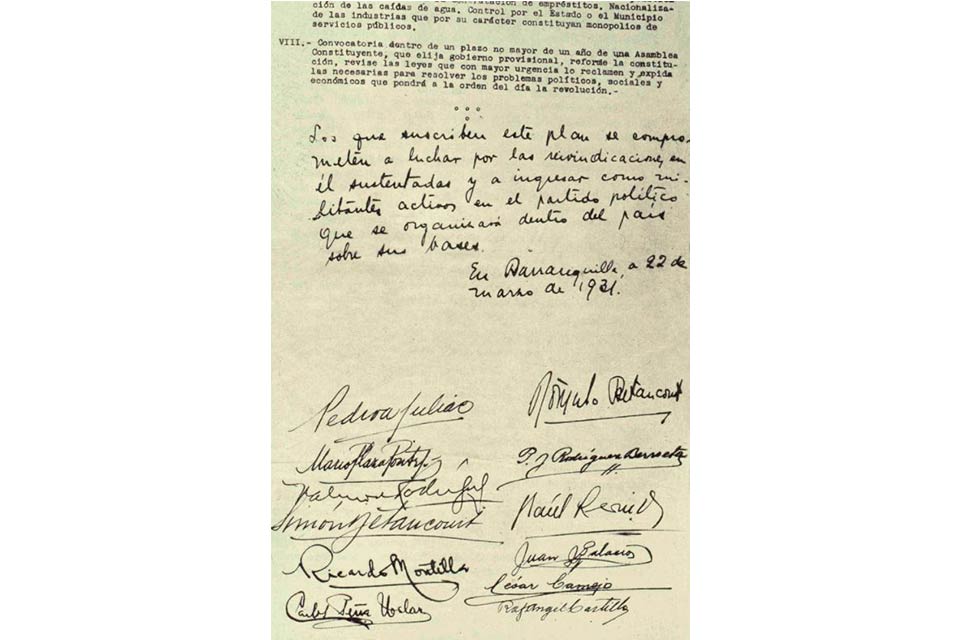 ción de las caídas de agua. Control por el Estado o el Municipio
de las industrias que por su carácter constituyan monopolios de
servicios públicos.
VIII.- Convocatoria dentro de un plazo no mayor de un año de una Asamblea
Constituyente, que elija gobierno provisional, reforme la constitu-
ción, revise las leyes que con mayor urgencia lo reclamen y expida
las necesarias para resolver los problemas políticos, sociales y
económicos que pondrá a la orden del día la revolución.-
Los que suscriben este plan se compro-
meten a luchar por las reivindicaciones en
él sustentadas y a ingresar como mi-
litantes activos en el partido político
que se organizará dentro del país
sobre sus bases.
En Barranquilla, a 22 de
marzo de 1931.
Pedro a Juliac
Rómulo Betancourt
Mario Plaza Ponte
P. J Rodríguez Berroeta
Valmore Rodríguez
Simón Betancourt
Raúl Leoni
Ricardo Montilla
Juan J Palacios
César Camejo
Carlos Peña Uslar
Rafangel Castillo